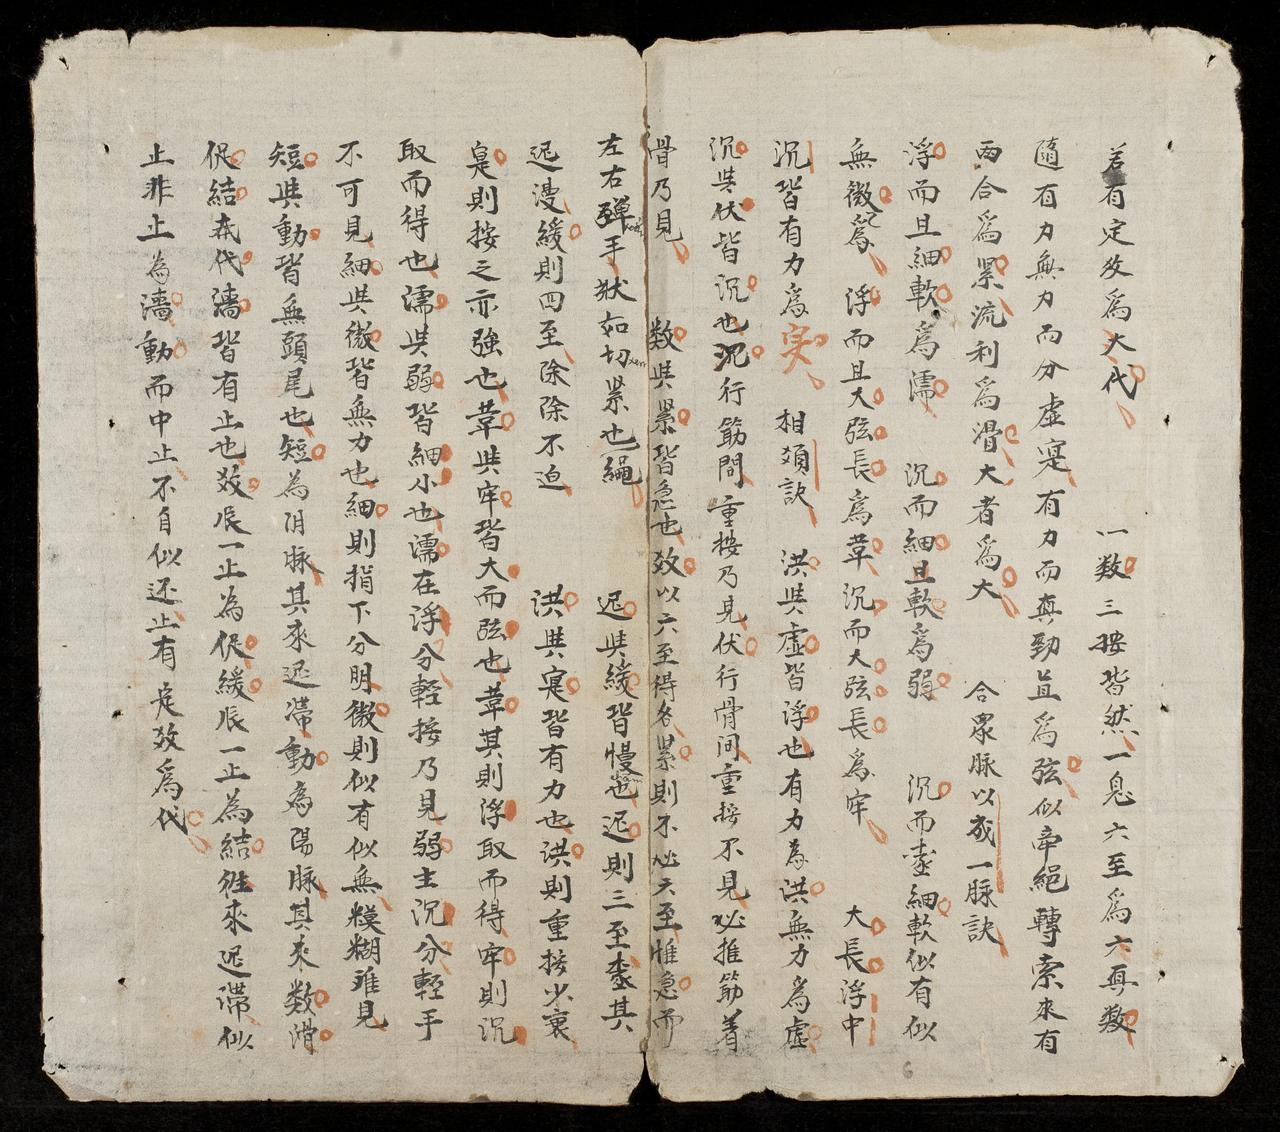 若有定效爲大代　一数三按皆然一息六至爲六真数
隨有力無力而分虛寔有力而真勁直爲弦似牵絕轉索來有
两合爲紧流利爲滑大者爲大　合眾脉以成一脉訣
浮而且細軟爲濡　沉而細且軟爲弱　沉而細軟似有似
無微爲　浮而且大弦長爲革沉而大弦長爲牢　大長浮中
沉皆有力爲実　相類訣　洪與虛皆浮也有力為洪無力爲虛
沉與伏皆沉也沉行筋間重按乃見伏行骨间重按不見必推筋着
骨乃見　数與紧皆急也效以六至得名紧則不必六至惟急而
左右弹手狀如切紧也繩　迟與緩皆慢也迟則三至其
迟漫緩則四至除除不迫　洪與寔皆有力也洪則重按少衰
寔則按之亦強也革與牢皆大而弦也革其則浮取而得牢則沉
取而得也濡與弱皆細小也濡在浮分輕按乃見弱主沉分輕手
不可見細與微皆無力也細則指下分明微則似有似無糢糊难見
短與動皆無頭尾也短為阴脉其來迟滞動為陽脉其來数滑
促結代濇皆有止也效辰一止為促緩辰一止為結往來迟滯似
止非止為濇動而中止不自似还止有定效爲代